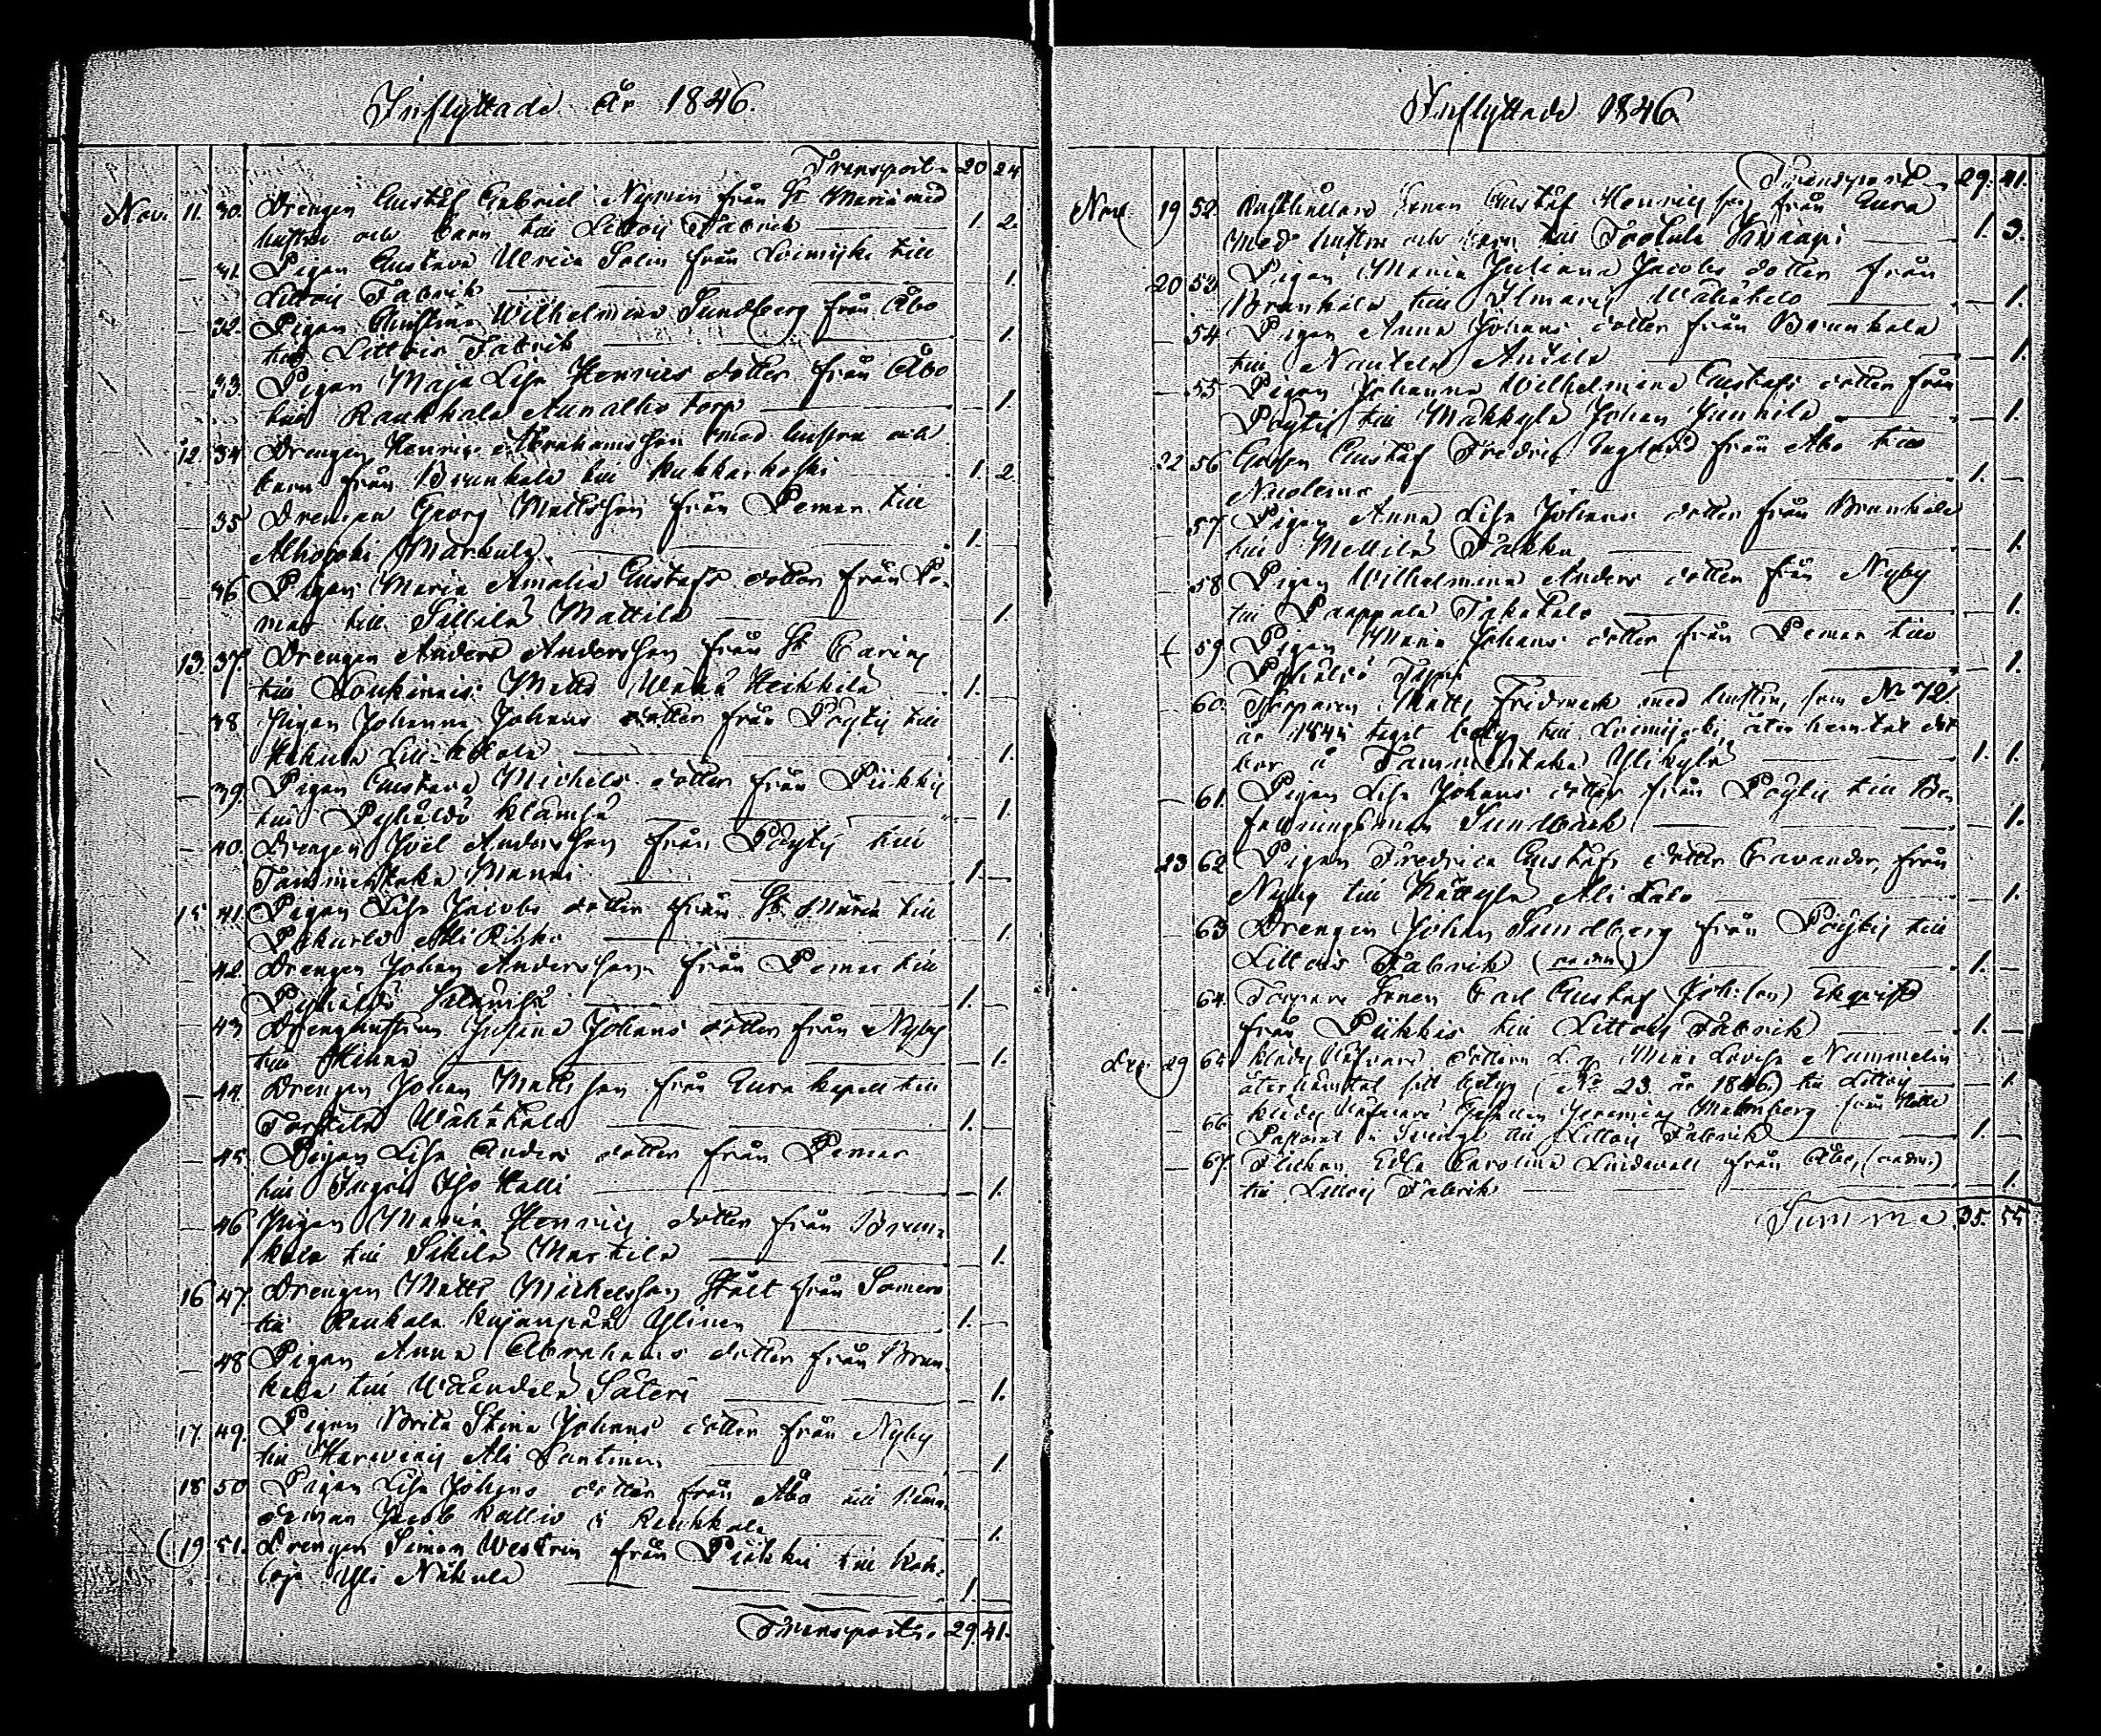 Inflyttade År 1846.
Transport. 20 24
Nov. 11. 30. Drengen Gustaf Gabriel Nyman från St Marie med
hustru och barn till Littois Fabrik 1 2.
31. Pigan Gustava Ulrica Salin från Loimijoki till
Littois Fabrik 1.
32. Pigan Christina Wilhelmina Sundberg från Åbo
till Littois Fabrik 1.
33. Pigan Maja Lisa Henrics dotter från Åbo
till Raukkala Aunalho torp 1.
12. 34 Drengen Henric Abrahamsson med hustru och
barn från Brunkala till Kukkarkoski 1. 2.
35 Drengen Georg Mattsson från Pemar till
Alhojoki Markula 1.
36 Pigan Maria Amalia Gustafs dotter från Pe-
mar till Sillilä Mattila 1.
13. 37. Drengen Anders Andersson från St Carins
till Loukinais Matts Wähä Heikkilä 1.
38 Pigan Johanna Johans dotter från Pöytis till
1.
39. Pigan Gustava Michels dotter från Piikkis
till Pyhältö Klämsä 1.
40. Drengen Joel Andersson från Pöytis till
Tammentaka Manni 1.
15 41. Pigan Lisa Jacobs dotter från St Marie till
Pakurla Ali Rihko 1.
42. Drengen Johan Andersson från Pemar till
Pyhältö Klämsä 1.
43 Drenghustrun Justina Johans dotter från Nyby
till 1.
44. Drengen Johan Mattsson från Aura kapell till
Torstila Wähätalo 1.
45. Pigan Lisa Anders dotter från Pemar
till Ingois Iso Kalli 1.
46 Pigan Maria Henrics dotter från Brun-
kala till Sikilä Martila 1.
16 47. Drengen Matts Michelsson Stålt från Somero
till Raukala Kujanpää Ylinen 1.
48 Pigan Anna Abrahams dotter från Brun-
kala till Wääntelä Säteri 1.
17. 49. Pigan Brita Stina Johans dotter från Nyby
till Harvois Ali Santinen 1
18 50 Pigan Lisa Johans dotter från Åbo till
Jacob Kallio i Raukkala 1.
19 51. Drengen Simon Westrin från Piikkis till Kai-
Yli Näkulä 1.
Transport. 29. 41.
Inflyttade 1846.
Transport 29. 41.
Nov 19 52 Rusthållare Sonen Gustaf Henricsson från Aura
med hustru och barn till Tortula Knaapi 1. 3.
20 53 Pigan Maria Juliana Jacobs dotter från
Brunkala till Ilmaris Wähätalo 1.
54 Pigan Anna Johans dotter från Brunkala
till Nautela Antila 1.
55 Pigan Johanna Wilhelmina Gustafs dotter från
Pöytis till Mäkkylä Johan Junnila 1.
22 56 Gossen Gustaf Fredric Englund från Åbo till
Nuolemo 1.
57 Pigan Anna Lisa Johans dotter från Brunkala
till Mellilä Takku 1.
58 Pigan Wilhelmina Anders dotter från Nyby
till Paappala Takatalo 1.
59 Pigan Maria Johans dotter från Pemar till
Pyhältö 1.
60. Torparen Matts Fridmark med hustru, som No 72.
år 1845 tagit betyg till Loimijoki, åter hemtat det
bor å Tammentaka Ylikylä 1. 1.
61 Pigan Lisa Johans dotter från Pöytis till Be-
fallningsman Sundbäck 1.
23 62 Pigan Fredrica Gustafs dotter Cavander, från
Nyby till Kättylä Ali Talo 1.
63 Drengen Johan Sundberg från Pöytis till
Littois Fabrik 1.
64. Torpare Sonen Carl Gustaf Johansson Ekqvist
från Piikkis till Littois Fabrik 1.
Dec 29 65 Klädes Wäfvare dottern Lovisa Nummelin
återhämtat sitt betyg (No 23. år 1846) till Littois 1.
66. Klädes Wäfvare Gesällen Jeremias Malmberg från
Pastorat i Sverige till Littois Fabrik 1.
67. Flickan Edla Carolina Lindevall från Åbo,
till Littois Fabrik 1.
Summa 35. 55